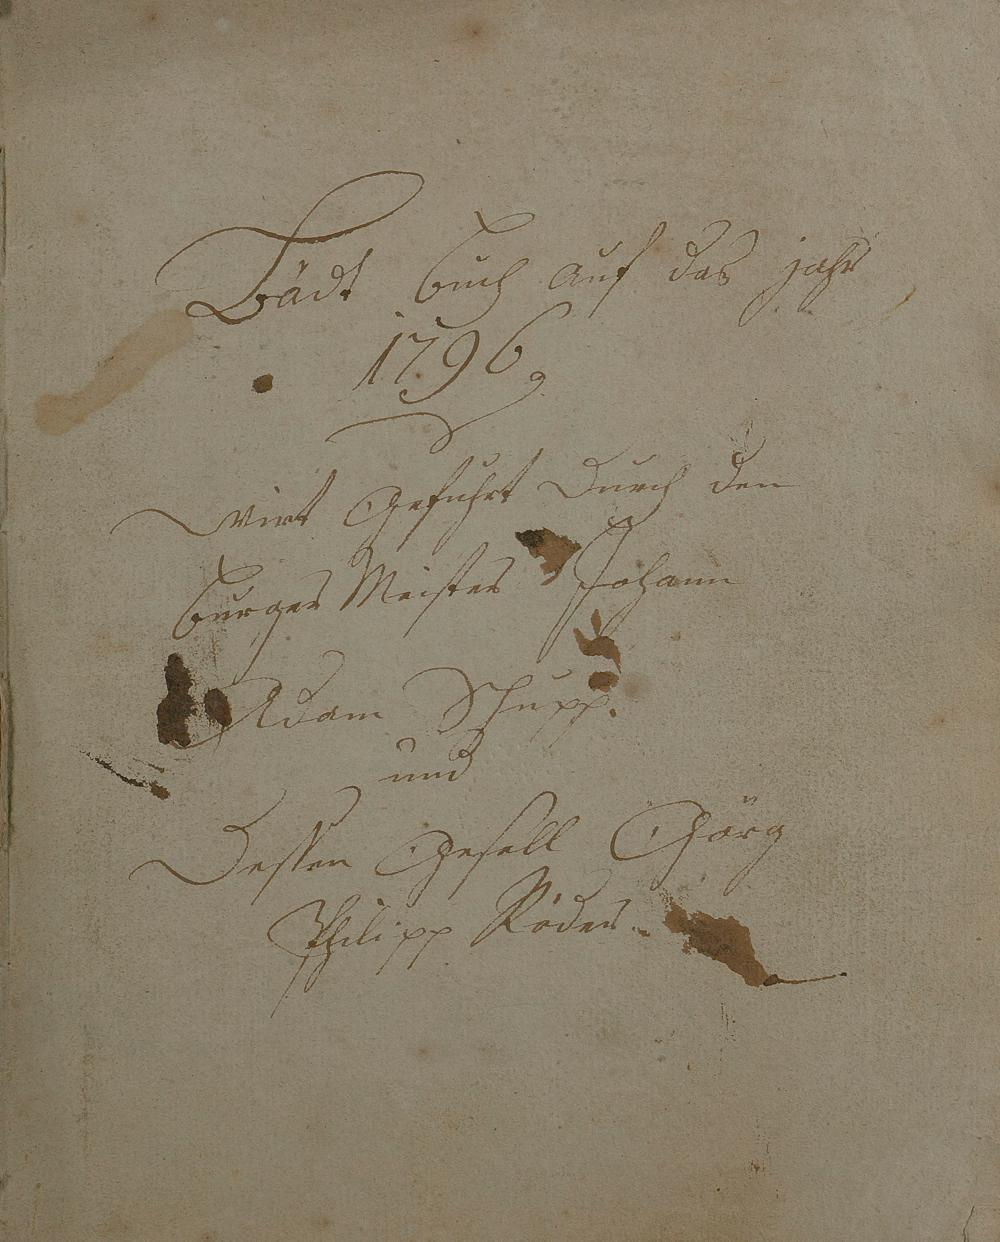 Bädt buch auf das jahr
1796
wirt gefuhrt durch den
burger Meister Johann
Adam Schupp.
und
Dessen gesell Görg
Philipp Röder.